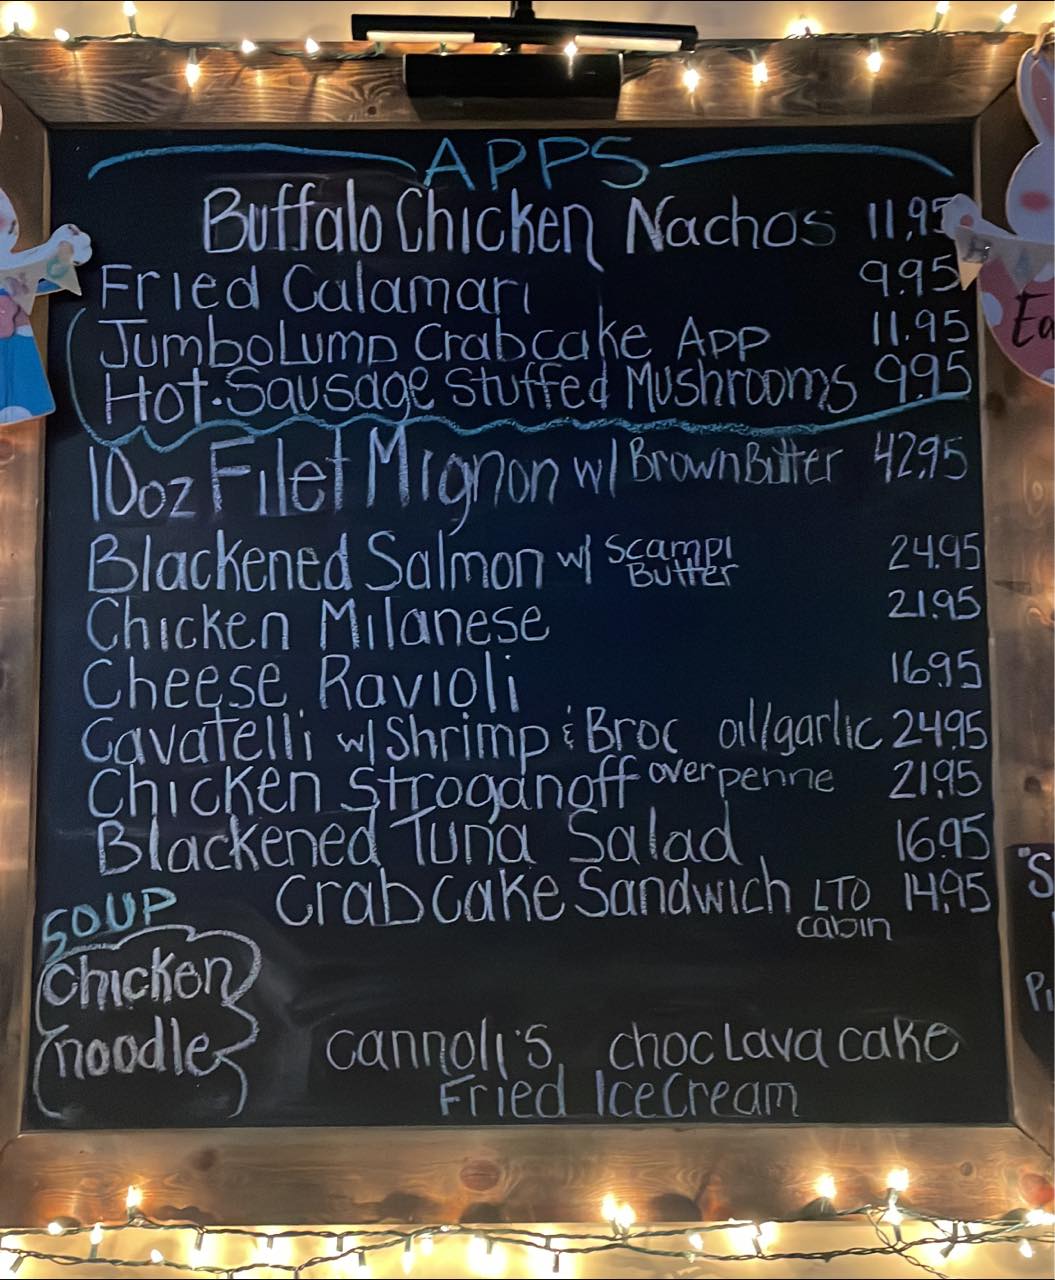 APPS
Buffalo Chicken Nachos 11.95
Fried Calamari 9.95
Jumbo Lump Crabcake App 11.95
Hot Sausage Stuffed Mushrooms 9.95
10oz Filet Mignon w/ Brown Butter 42.95
Blackened Salmon w/ Scampi Butter 24.95
Chicken Milanese 21.95
Cheese Ravioli 16.95
Cavatelli w/ Shrimp & Broc oil/garlic 24.95
Chicken Stroganoff over penne 21.95
Blackened Tuna Salad 16.95
Crab Cake Sandwich LTO 14.95
cabin
SOUP
Chicken
noodle
cannoli's choc Lava cake
Fried Ice Cream